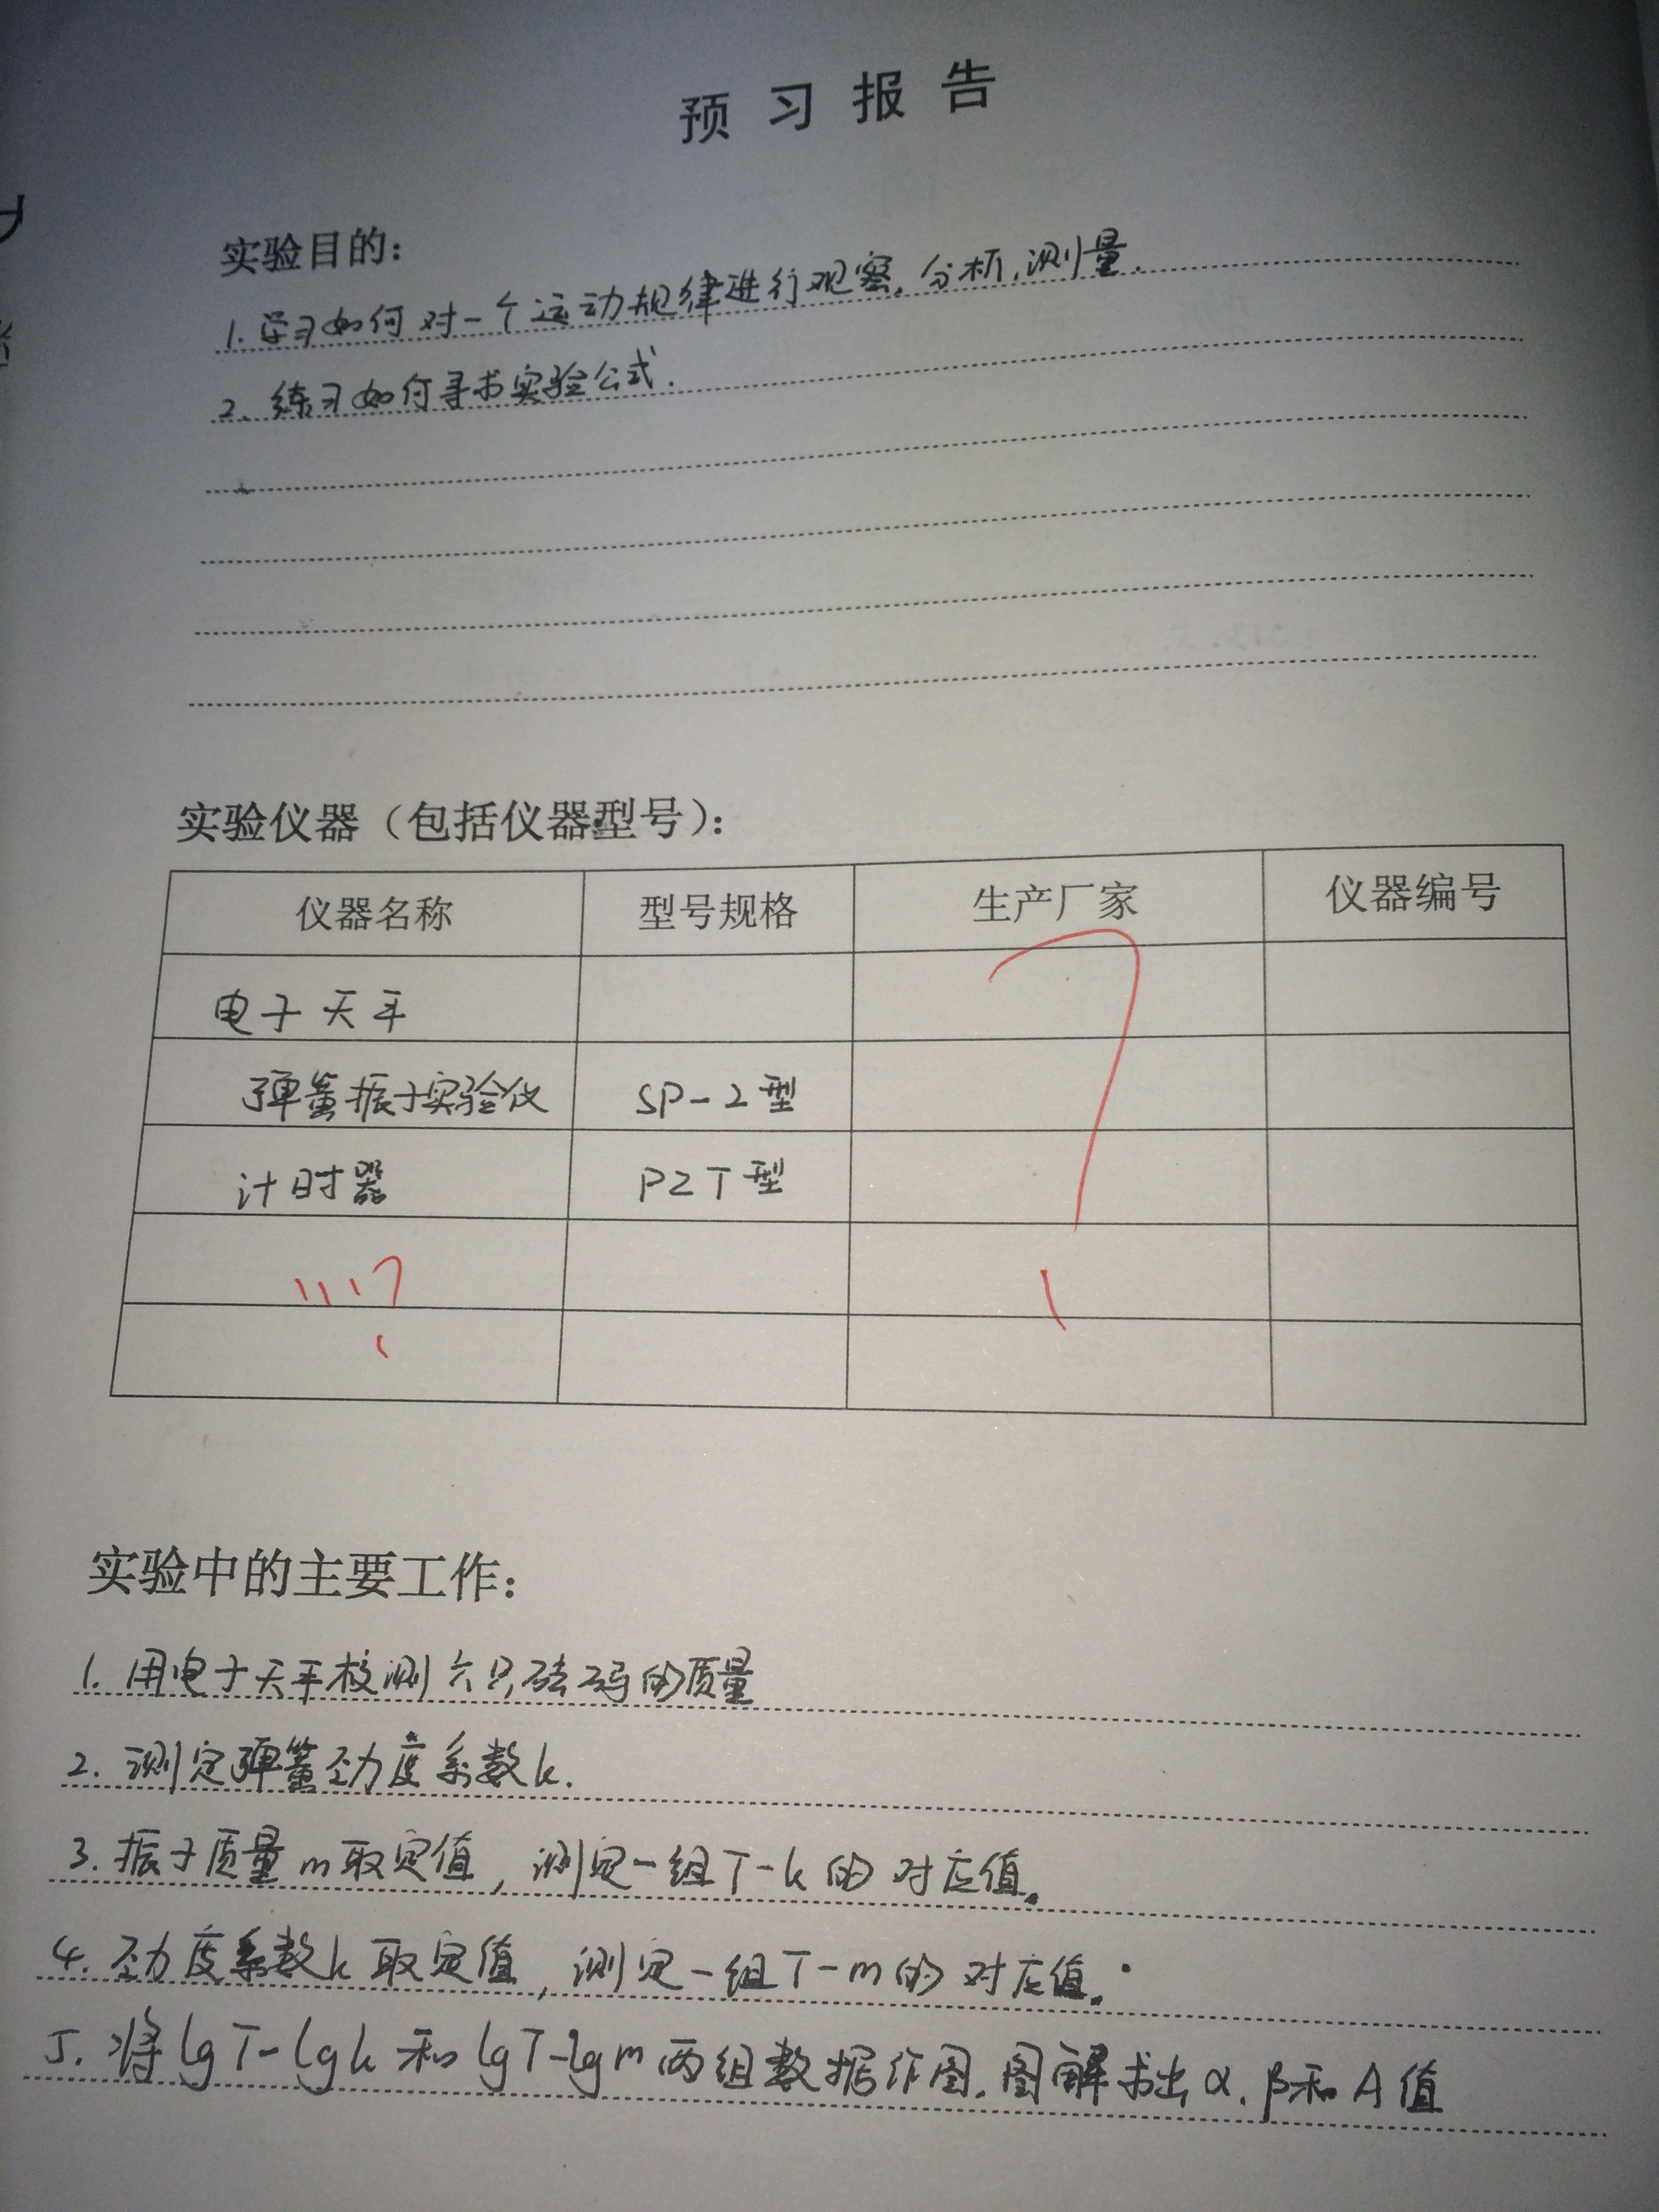 预习报告
实验目的：
1. 学习如何对一个运动规律进行观察、分析、测量.
2. 练习如何寻求实验公式.
实验仪器（包括仪器型号）：
仪器名称 型号规格 生产厂家 仪器编号
电子天平
弹簧振子实验仪 SP-2型
计时器 PZT型
实验中的主要工作：
1. 用电子天平校测六只砝码的质量
2. 测定弹簧劲度系数k.
3. 振子质量m取定值，测定一组T-k的对应值。
4. 劲度系数k取定值，测定一组T-m的对应值。
5. 将lgT-lgk和lgT-lgm两组数据作图.图解求出α、β和A值